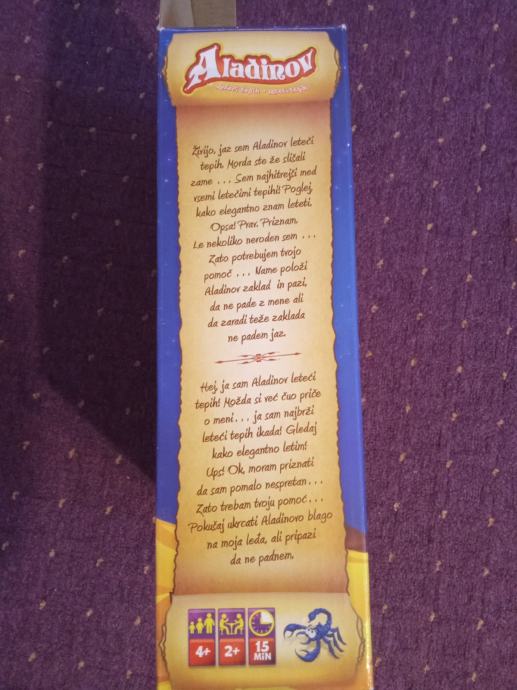 Aladinov
leteči tepih • leteći tepih
Živijo, jaz sem Aladinov leteči
tepih. Morda ste že slišali
zame ... Sem najhitrejši med
vsemi letečimi tepihi! Poglej,
kako elegantno znam leteti.
Opsa! Prav. Priznam.
Le nekoliko neroden sem ...
Zato potrebujem tvojo
pomoč ... Name položi
Aladinov zaklad in pazi,
da ne pade z mene ali
da zaradi teže zaklada
ne padem jaz.
Hej, ja sam Aladinov leteći
tepih! Možda si već čuo priče
o meni... ja sam najbrži
leteći tepih ikada! Gledaj
kako elegantno letim!
Ups! Ok, moram priznati
da sam pomalo nespretan...
Zato trebam tvoju pomoć...
Pokušaj ukrcati Aladinovo blago
na moja leđa, ali pripazi
da ne padnem.
4+ 2+ 15
MIN